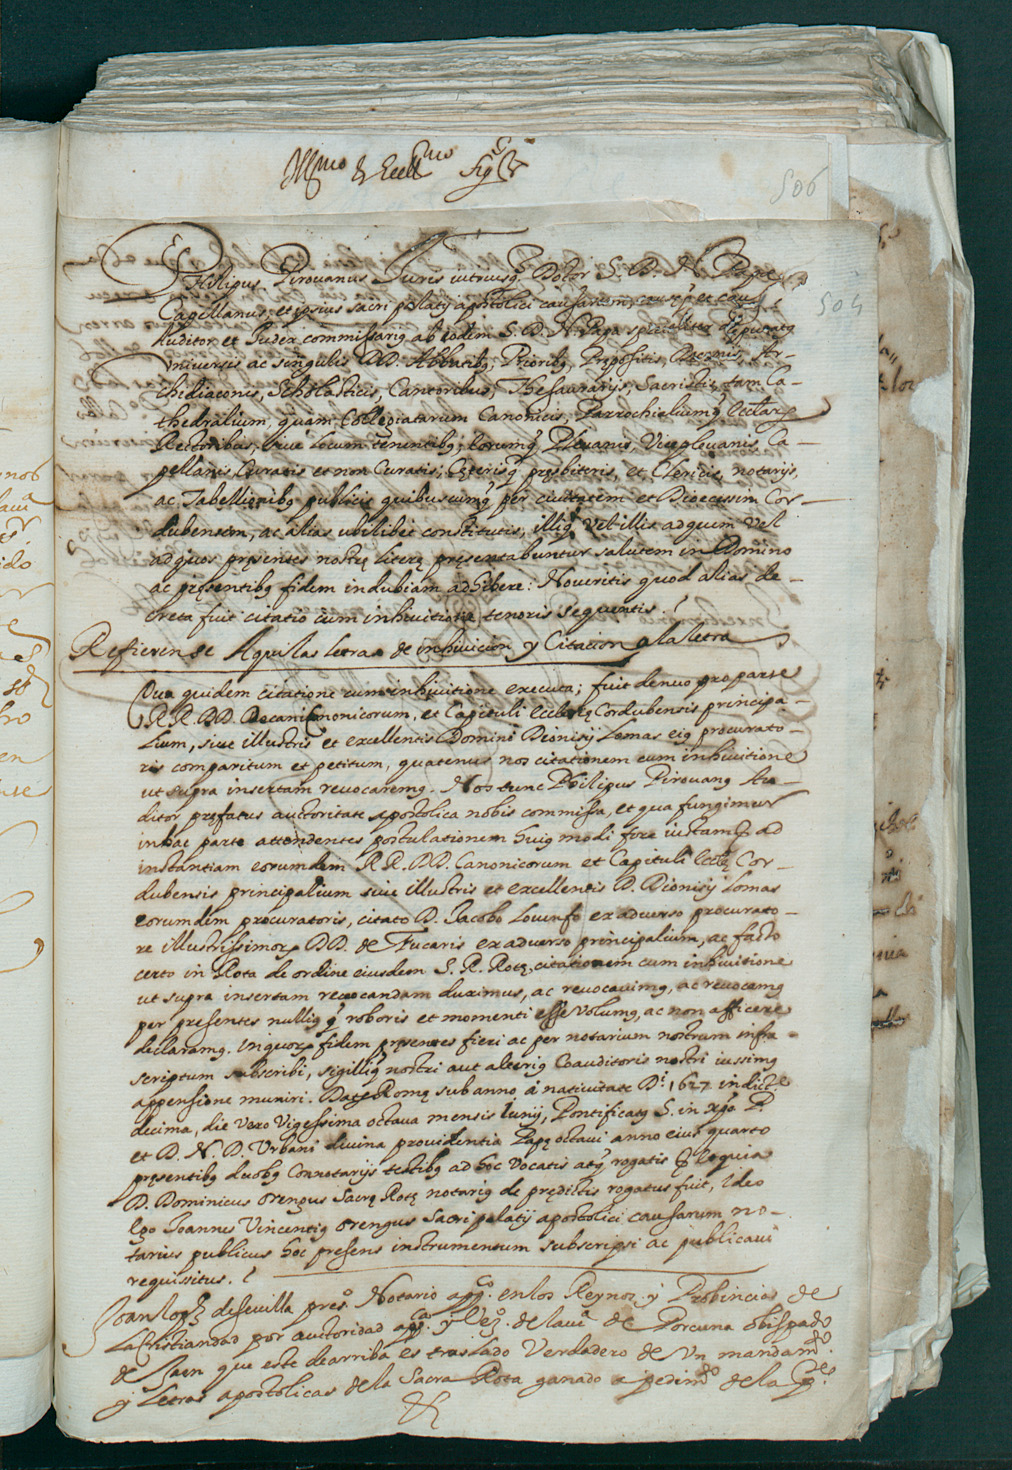 Illmo & Eccllmo Sigr
506
504
Philipus Pirovanus Juris utriusq Doctor S. D. N. Papæ
Capellanus, et ipsius sacri palatij apostolici causarum, causæq et caus
Auditor et Judex commissariq ab eodem S. D. N. Papa specialiter deputatq
Vniversis ac singulis DD. Abbatibq, Prioribq, Prępositis, Decanis, Ar-
chidiaconis, Scholasticis, Cantoribus, Thesaurarijs, Sacristis, tam Ca-
thedralium, quam Collegiatarum Canonicis, Parrochialiumq ecclarz
Rectoribus, sive locum tenentibq, eorumq Plevanis, Viceplevanis, Ca-
pellanis Curatis et non Curatis, Cęterisq pręsbiteris, et Clericis, notarijs,
ac Tabellionibq publicis quibuscumq per civitatem et Diœcesim Cor-
dubensem, ac alias ubilibet constitutis, illiq vel illis ad quem vel
ad quos pręsentes nostrę literę pręsentabuntur salutem in Domino
ac pręsentibq fidem indubiam adhibere: Noveritis quod alias de-
creta fuit citatio cum inhivitione tenoris sequentis.
Refieren se Aquí las letras de inhivicion y Citacion a la letra
Qua quidem citatione cum inhivitione executa; fuit denuo pro parte
R. R. DD. Decani Canonicorum, et Capituli ecclesię Cordubensis principa-
lium, sive illustris et excellentis Domini Dionisij Lomas eiq procurato-
ris comparitum et petitum, quatenus nos citationem cum inhivitione
ut supra insertam revocaremq. Nos tunc Philipus Pirovanq Au-
ditor prefatus auctoritate apostolica nobis commissa, et qua fungimur
in hac parte attendentes postulationem huiqmodi fore iustam, ad
instantiam eorumdem R R. DD. Canonicorum et Capituli ecclę Cor-
dubensis principalium sive illustris et excellentis D. Dionisij Lomas
eorumdem procuratoris, citato D. Jacobo Lovenfo ex adverso procurato-
re illustrissimorz DD. de Fucaris ex adverso principalium, ac facto
certo in Rota de ordine eiusdem S. R. Rotę, citationem cum inhivitione
ut supra insertam revocandam duximus, ac revocavimq, ac revocamq
per presentes nulliq q roboris et momenti esse volumq, ac non afficere
declaramq. In quorz fidem pręsentes fieri ac per notarium nostrum infra-
scriptum subscribi, sigilliq nostri aut alteriq Coauditoris nostri iussimq
appensione muniri. Datę Romę sub anno a nativitate Di. 1627 indicte
decima, die vero Vigessima octava mensis Iunij, Pontificatq S. in xpo P.
et D. N. D. Urbani divina providentia Papę octavi anno eius quarto
pręsentibq duobq Connotarijs testibq ad hoc vocatis atq rogatis q le quia
D. Dominicus Orengus Sacrę Rotę notariq de prędictis rogatus fuit, Ideo
Ego Joannes Vincentiq Orengus Sacri palatij apostolici causarum no-
tarius publicus hoc presens instrumentum subscripsi ac publicavi
requissitus.
Joan lopz de sevilla presº. Notario appco. en los Reynos y Probincias de
La Cristiandad por auctoridad appca. y Vezº. de la vila de Porcuna obispado
de Jaen que este de arriba es traslado Verdadero de Un mandamdo.
y Letras apostolicas de la Sacra Rota ganado a pedimdo de la